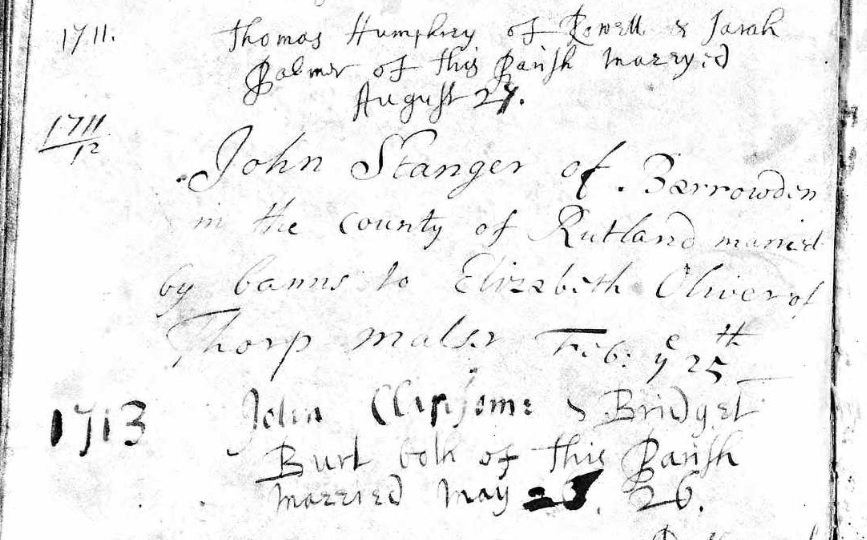 1711. Thomas Humphrey of Rowell & Sarah
Palmer of this Parish Marryed
August 27.
1711/12
John Stanger of Barrowden
in the County of Rutland married
by banns to Elizabeth Oliver of
Thorp Malsr Feb: ye 25th
1713 John Clipsome & Bridget
Burt both of this Parish
Married May 26.